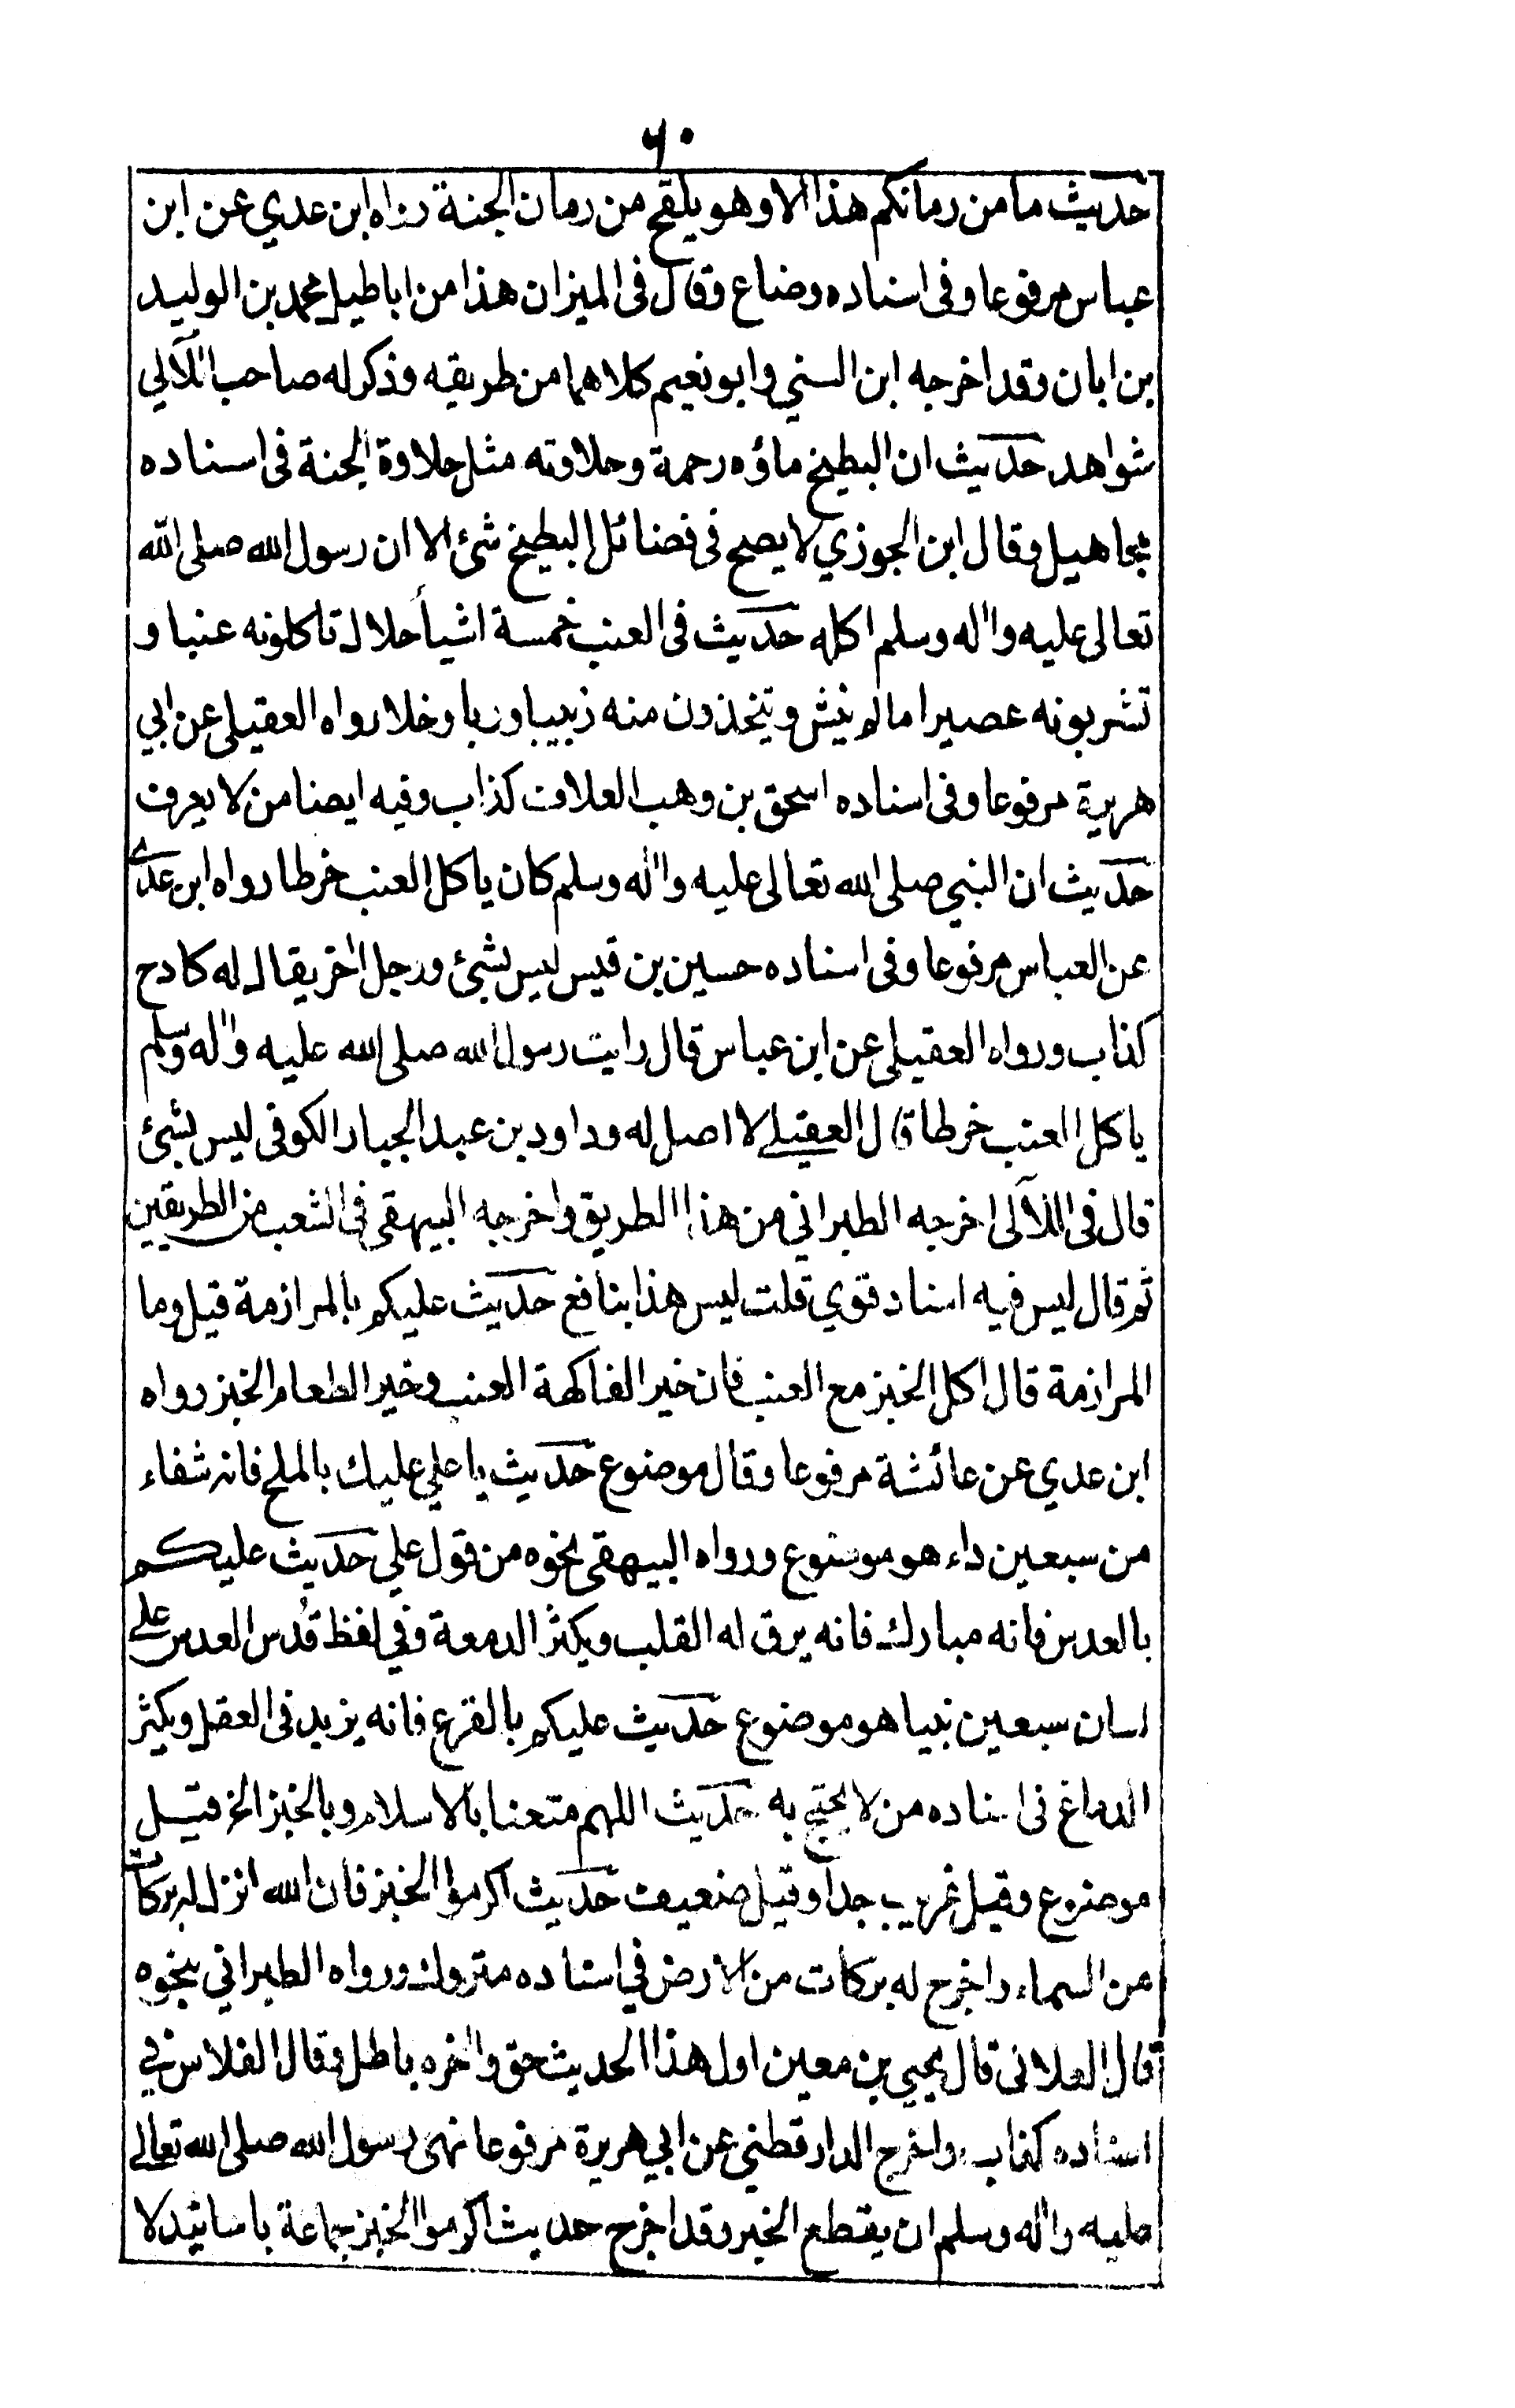 ٦٠
حديث ما من رمانكم هذا الا وهو يلقح من رمان الجنة رواه ابن عدي عن ابن
عباس مرفوعا وفى اسناده وضاع وقال فى الميزان هذا من اباطيل محمد بن الوليد
بن ابان وقد اخرجه ابن السني وابو نعيم كلاهما من طريقه وذكر له صاحب اللآلي
شواهد حديث ان البطيخ ماؤه رحمة وحلاوته مثل حلاوة الجنة فى اسناده
مجاهيل وقال ابن الجوزي لا يصح فى فضائل البطيخ شئ الا ان رسول الله صلى الله
تعالى عليه واٰله وسلم اكله حديث فى العنب خمسة اشيأ حلال تاكلونه عنبا و
تشربونه عصيرا مالم ينش وتتخذون منه زبيبا وربا وخلا رواه العقيلى عن ابي
هريرة مرفوعا وفى اسناده اسحق بن وهب العلاف كذاب وفيه ايضا من لا يعرف
حديث ان النبي صلى الله تعالى عليه واٰله وسلم كان ياكل العنب خرطا رواه ابن عدى
عن العباس مرفوعا وفى اسناده حسين بن قيس ليس بشئ ورجل اٰخر يقال له كادح
كذاب ورواه العقيلى عن ابن عباس قال رايت رسول الله صلى الله عليه واٰله وسلم
ياكل العنب خرطا قال العقيلے لا اصل له وداود بن عبد الجبار الكوفى ليس بشئ
قال فى اللآلى اخرجه الطبراني من هذا الطريق واخرجه البيهقى فى الشعب من الطريقين
ثم قال ليس فيه اسناد قوي قلت ليس هذا بنافع حديث عليكم بالمرازمة قيل وما
المرازمة قال اكل الخبز مع العنب فان خير الفاكهة العنب وخير الطعام الخبز رواه
ابن عدي عن عائشة مرفوعا وقال موضوع حديث يا علي عليك بالملح فانه شفاء
من سبعين داء هو موضوع ورواه البيهقى نحوه من قول علي حديث عليكم
بالعدس فانه مبارك فانه يرق له القلب ويكثر الدمعة وفي لفظ قُدس العدس علے
لسان سبعين نبيا هو موضوع حديث عليكم بالقرع فانه يزيد فى العقل ويكثر
الدماغ فى اسناده من لا يحتج به حديث اللهم متعنا بالاسلام وبالخبز الخ قيل
موضوع وقيل غريب جدا وقيل ضعيف حديث اكرموا الخبز فان الله انزل له بركات
من السماء واخرج له بركات من الارض في اسناده متروك ورواه الطبراني بنحوه
قال العلائى قال يحيي بن معين اول هذا الحديث حق واٰخره باطل وقال الفلاس في
اسناده كذاب واخرج الدارقطني عن ابي هريرة مرفوعا نهى رسول الله صلى الله تعالے
عليه واٰله وسلم ان يقطع الخبز وقد اخرج حديث اكرموا الخبز جماعة باسانيد لا